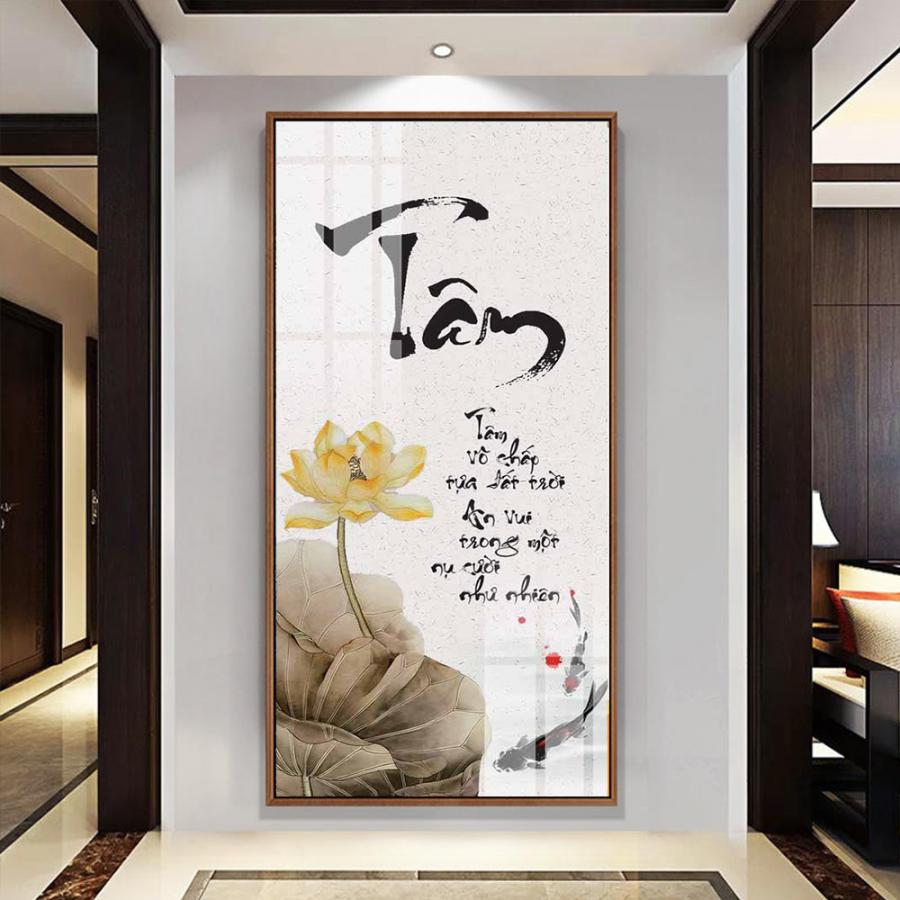 Tâm
Tâm
vô chấp
tựa đất trời
An vui
trong một
nụ cười
như nhiên